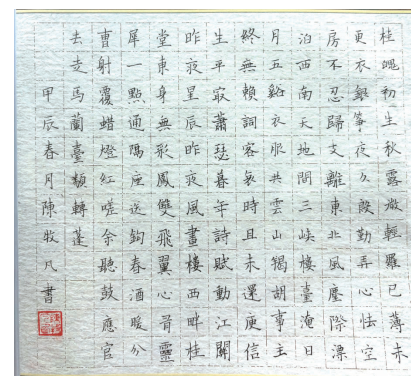 桂魄初生秋露微輕羅已薄未
更衣銀箏夜久殷勤弄心怯空
房不忍歸支離東北風塵際漂
泊西南天地間三峽樓臺淹日
月五谿衣服共雲山羯胡事主
終無賴詞客哀時且未還庾信
生平最蕭瑟暮年詩賦動江關
昨夜星辰昨夜風畫樓西畔桂
堂東身無形鳳雙飛翼心有靈
犀一點通隔座送鉤春酒暖分
曹射覆蜡燈紅嗟余聽鼓應官
去走馬蘭臺類轉蓬
甲辰春月陳牧凡書